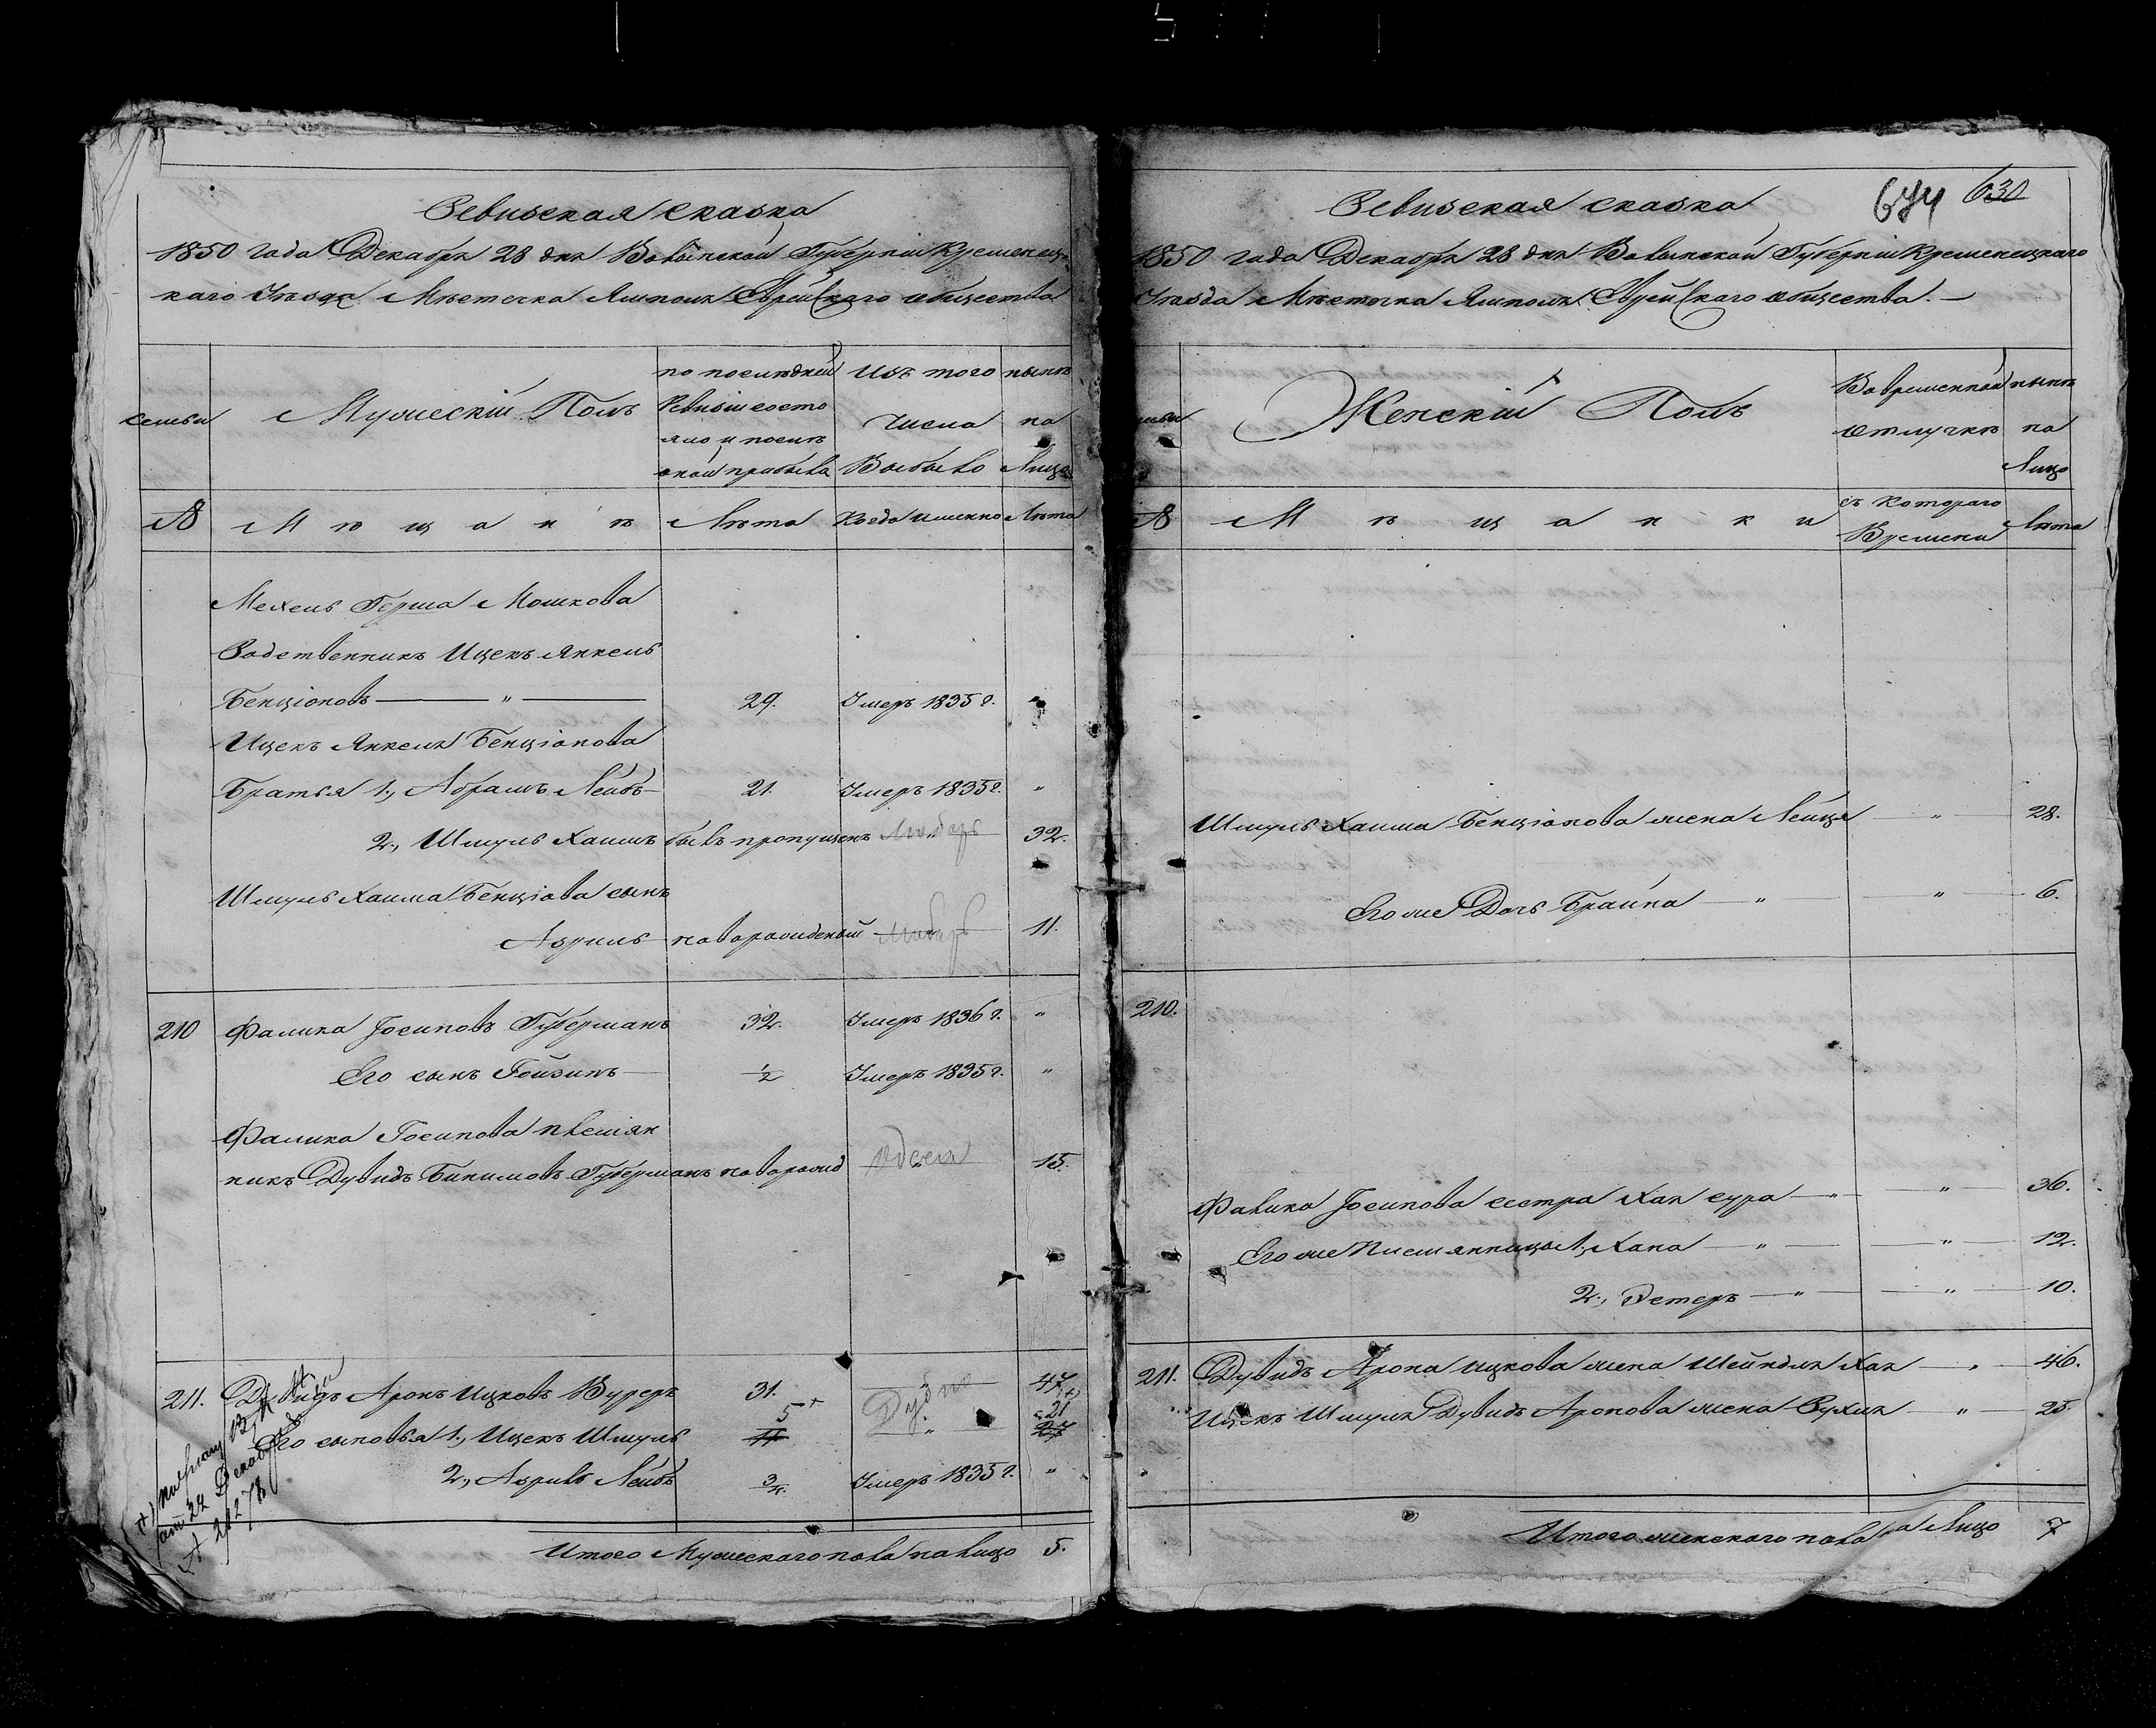 Ревизская сказка
1850 года Декабря 28 дня Волынской Губерніи Кременец-
каго Уѣзда Мѣстечка Ямполя Еврейскаго общества
семьи
Мужескій Полъ
по послѣдней
Ревизіи состо
яло и послѣ
оной прибыло
Изъ того
Числа
Выбыло
нынѣ
на
Лицо
№
Мѣщане
Лѣта
Когда именно
Лѣта
Мехель Герша Мошкова
Родственникъ Ицекъ Янкель
Бенціоновъ — " — 29. Умеръ 1835 г. "
Ицекъ Янкеля Бенціонова
Братья 1., Абрамъ Лейбъ 21. Умеръ 1835 г. "
2., Шмуль Хаимъ былъ пропущенъ Любаръ 32.
Шмуль Хаима Бенціова сынъ
Азриль новорожденый Любаръ 11.
210 Фалика Іосиповъ Губерманъ 32. Умеръ 1836 г. "
Его сынъ Гойзипъ ½ Умеръ 1835 г. "
Фалика Іосипова племян
никъ Дувидъ Бинимовъ Губерманъ новорожд Одесса 15.
211. Дувидъ Аронъ Ицковъ Вуреръ 31. Дубно 47
5+ +) 21
Его сыновья 1., Ицекъ Шмуль 11 " 27
2., Азрилъ Лейбъ ¾. Умеръ 1835 г. "
отъ 22 Декабря
№ 21278
Итого Мужескаго пола на лицо 5.
674 630
Ревизская сказка
1850 года Декабря 28 дня Волынской Губерніи Кременецкаго
Уѣзда Мѣстечка Ямполя Еврейскаго общества. —
Женскій Полъ
Во временной
отлучкѣ
нынѣ
на
Лицо
№
Мѣщанки
съ котораго
Времени
Лѣта
Шмуль Хаима Бенціонова жена Лейця " 28.
Его же Дочь Брайна — " — " — 6.
210.
Фалика Іосипова сестра Хая сура — " — " — 36.
Его же Племянницы 1, Хана — " — " — 12.
2., Эстеръ — " — " — 10.
211. Дувидъ Арона Ицкова жена Шейндля Хая — " — 46.
" Ицекъ Шмуля Дувидъ Аронова жена Рухля — " — 25.
Итого женскаго пола на Лицо 7